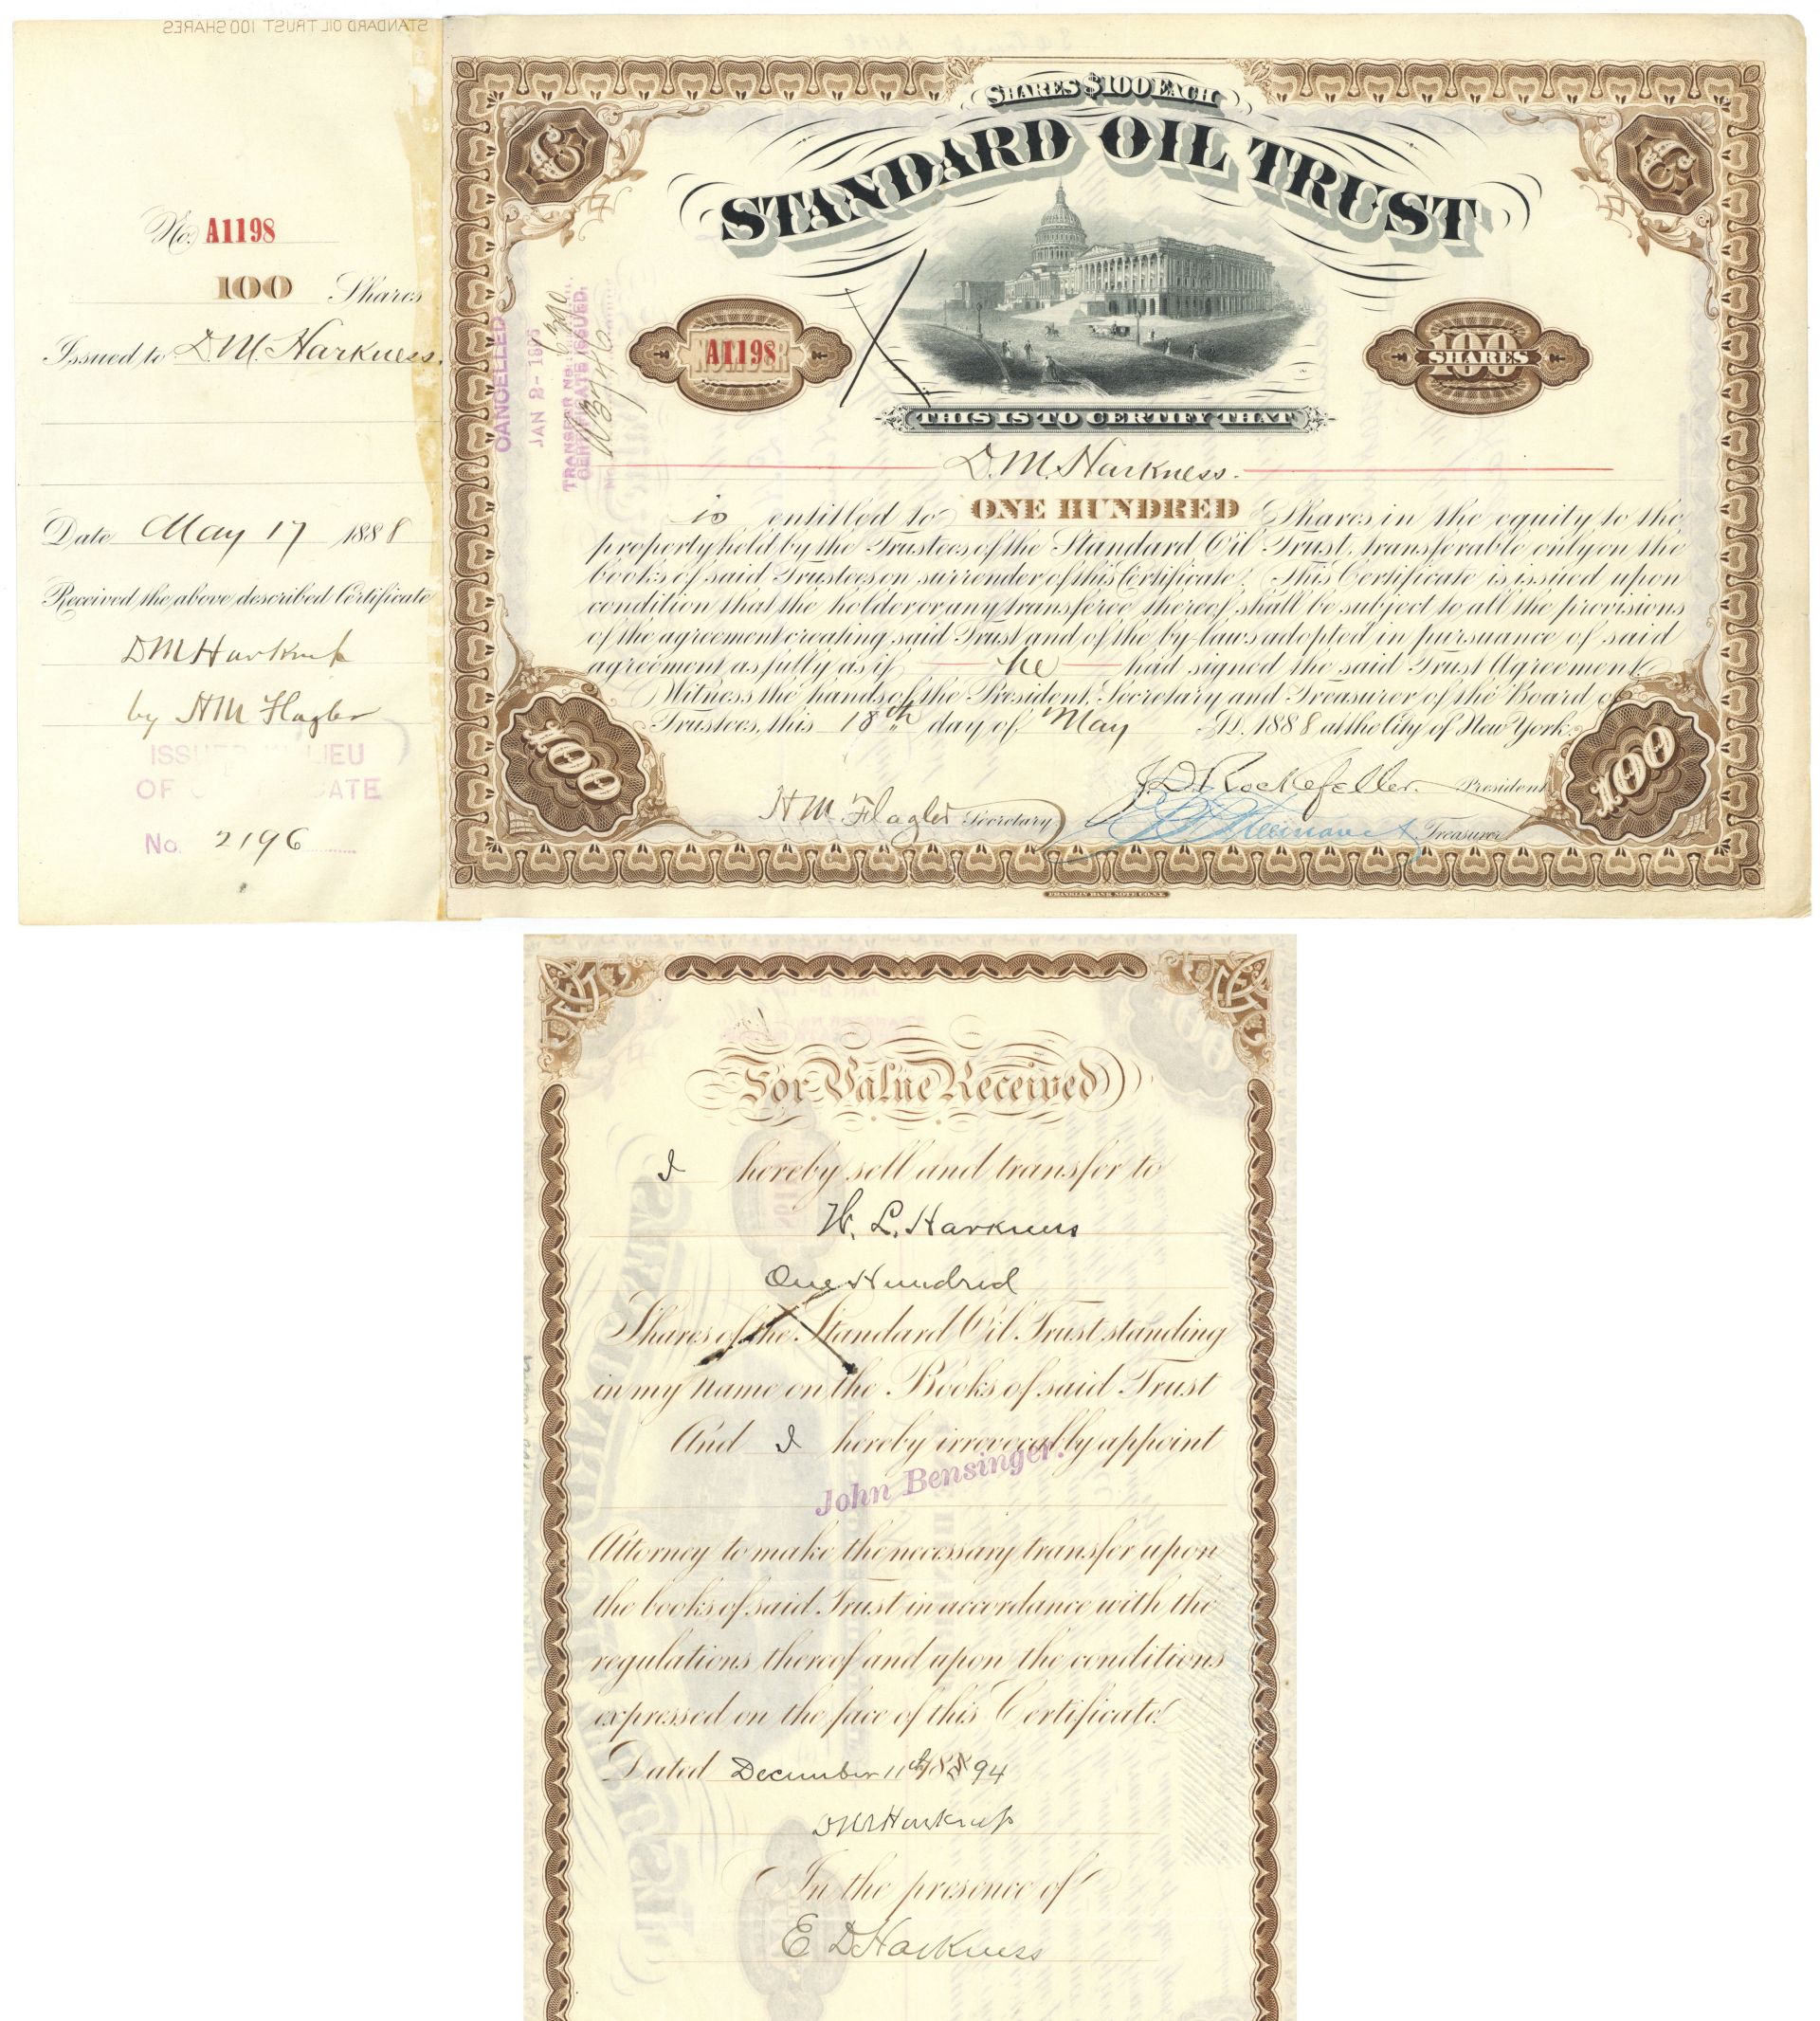 STANDARD OIL TRUST 100 SHARES
No. A1198
100 Shares
Issued to D.M. Harkness.
Date May 17 1888
Received the above described Certificate
DM Harkness
by HM Flagler
ISSUED IN LIEU
OF CERTIFICATE
No. 2196
SHARES $100 EACH
STANDARD OIL TRUST
CANCELLED
JAN 2- 1895
TRANSFER No.
CERTIFICATE ISSUED.
NUMBER
A1198
100
SHARES
THIS IS TO CERTIFY THAT
D.M. Harkness.
is entitled to ONE HUNDRED Shares in the equity to the
property held by the Trustees of the Standard Oil Trust, transferable only on the
books of said Trustees on surrender of this Certificate. This Certificate is issued upon
condition that the holder or any transferee thereof shall be subject to all the provisions
of the agreement creating said Trust and of the by-laws adopted in pursuance of said
agreement as fully as if he had signed the said Trust Agreement.
Witness the hands of the President, Secretary and Treasurer of the Board of
Trustees, this 18th day of May A.D. 1888 at the City of New York.
J.D. Rockefeller. President
HM Flagler Secretary
Treasurer
100
100
FRANKLIN BANK NOTE CO. N.Y.
For Value Received
I hereby sell and transfer to
W. L. Harkness
One Hundred
Shares of the Standard Oil Trust standing
in my name on the Books of said Trust
And I hereby irrevocably appoint
John Bensinger.
Attorney to make the necessary transfer upon
the books of said Trust in accordance with the
regulations thereof and upon the conditions
expressed on the face of this Certificate.
Dated December 11th 188 94
DM Harkness
In the presence of
E D Harkness